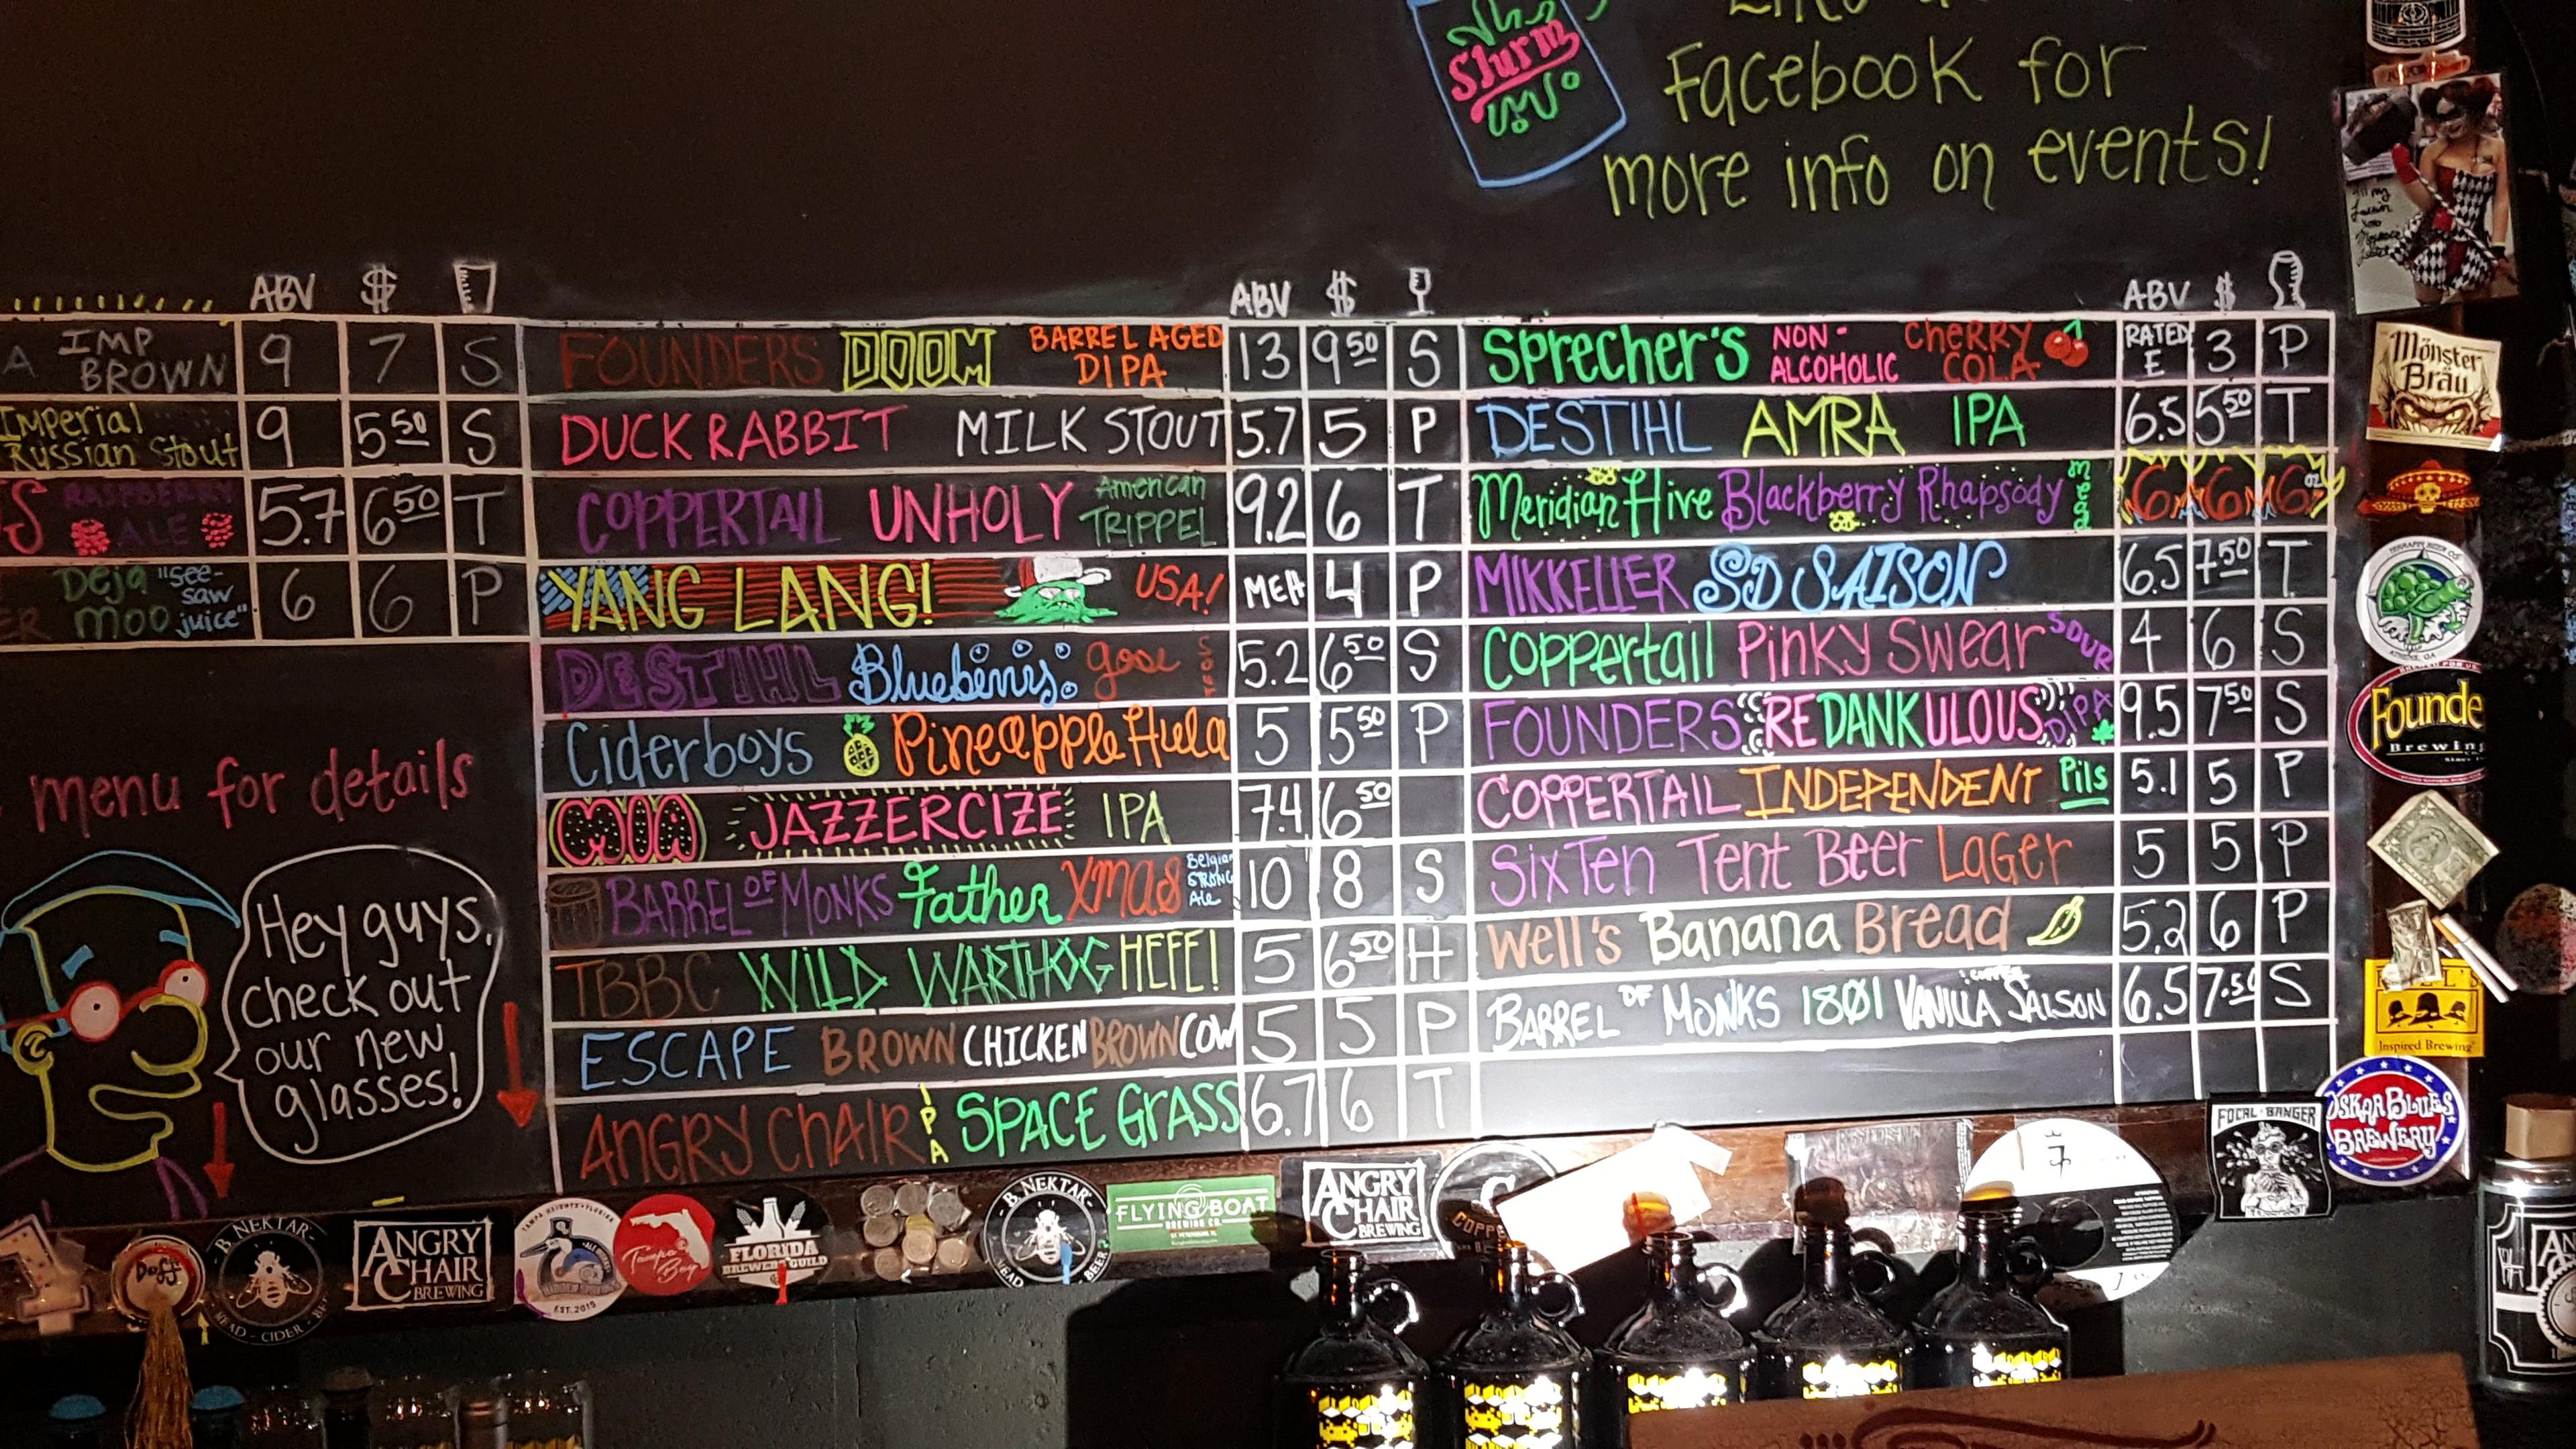 Slurm
Facebook for
more info on events!
ABV $
IMP BROWN 9 7 S
Imperial Russian Stout 9 5.50 S
RASPBERRY ALE 5.7 6.50 T
Deja moo "see-saw juice" 6 6 P
menu for details
Hey guys,
check out
our new
glasses!
ABV $
FOUNDERS DOOM BARREL AGED DIPA 13 9.50 S
DUCK RABBIT MILK STOUT 5.7 5 P
COPPERTAIL UNHOLY American TRIPPEL 9.2 6 T
YANG LANG! USA! MEH 4 P
DESTIHL gose 5.2 6.50 S
Ciderboys Pineapple Hula 5 5.50 P
MIA JAZZERCIZE IPA 7.4 6.50
BARREL OF MONKS Father XMAS Belgian STRONG Ale 10 8 S
TBBC WILD WARTHOG HEFE! 5 6.50 H
ESCAPE BROWN CHICKEN BROWN COW 5 5 P
ANGRY CHAIR IPA SPACE GRASS 6.7 6 T
ABV $
SPRECHER'S NON-ALCOHOLIC CHERRY COLA RATED E 3 P
DESTIHL AMRA IPA 6.5 5.50 T
Meridian Hive Blackberry Rhapsody 6 6 6 oz
MIKKELLER SD SAISON 6.5 7.50 T
Coppertail Pinky Swear SOUR 4 6 S
FOUNDERS REDANKULOUS DIPA 9.5 7.50 S
COPPERTAIL INDEPENDENT Pils 5.1 5 P
SixTen Tent Beer Lager 5 5 P
Well's Banana Bread 5.2 6 P
BARREL OF MONKS 1801 VANILLA COFFEE SAISON 6.5 7.50 S
Mönster
Bräu
Founde
Brewing
Inspired Brewing
OSKAR BLUES
BREWERY
FOCAL BANGER
B. NEKTAR
MEAD - CIDER - BE
ANGRY
CHAIR
BREWING
EST. 2015
Tampa
Bay
FLORIDA
BREWERS GUILD
B. NEKTAR
FLYING BOAT
BREWING CO.
ANGRY
CHAIR
BREWING